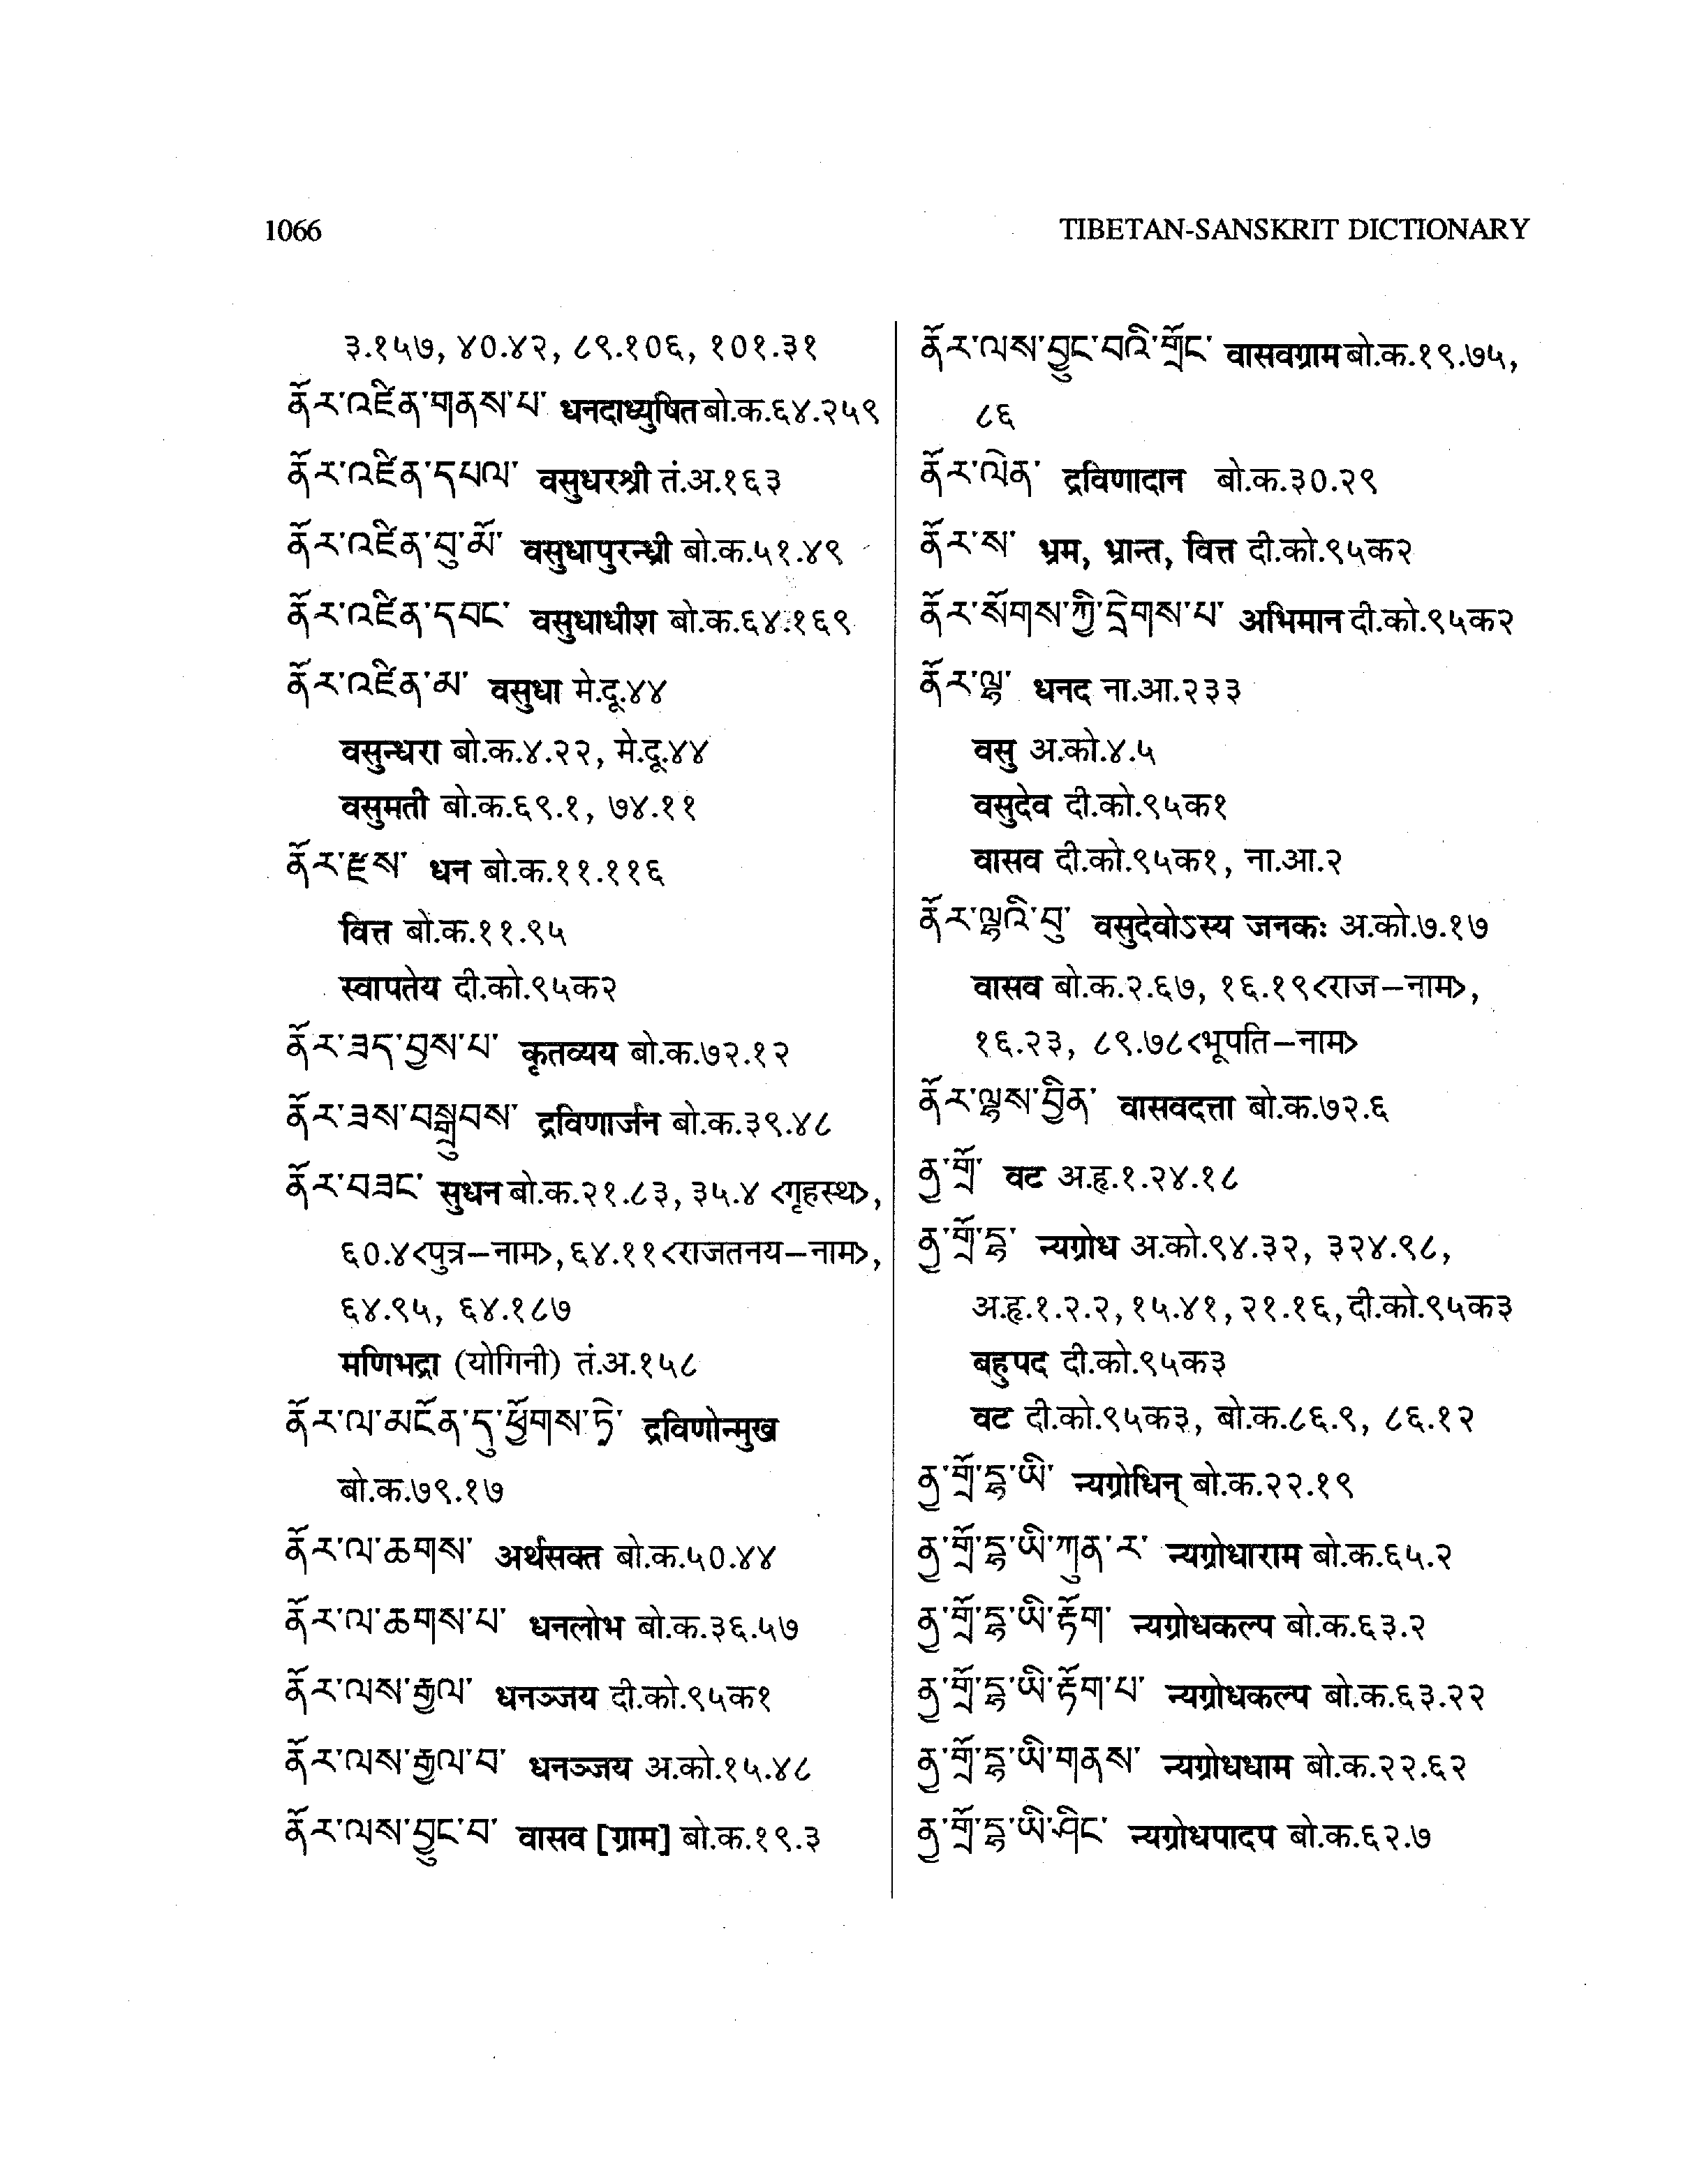 1066
TIBETAN-SANSKRIT DICTIONARY
३.१५७, ४०.४२, ८९.१०६, १०१.३१
ནོར་འཛིན་གནས་པ་ धनदाध्युषित बो.क.६४.२५९
ནོར་འཛིན་དཔལ་ वसुधरश्री तं.अ.१६३
ནོར་འཛིན་བུ་མོ་ वसुधापुरन्ध्री बो.क.५१.४९
ནོར་འཛིན་དབང་ वसुधाधीश बो.क.६४.१६९
ནོར་འཛིན་མ་ वसुधा मे.दू.४४
वसुन्धरा बो.क.४.२२, मे.दू.४४
वसुमती बो.क.६९.१, ७४.११
ནོར་རྫས་ धन बो.क.११.११६
वित्त बो.क.११.९५
स्वापतेय दी.को.९५क२
ནོར་ཟད་བྱས་པ་ कृतव्यय बो.क.७२.१२
ནོར་ཟས་བསྒྲུབས་ द्रविणार्जन बो.क.३९.४८
ནོར་བཟང་ सुधन बो.क.२१.८३, ३५.४ <गृहस्थ>,
६०.४<पुत्र–नाम>, ६४.११<राजतनय–नाम>,
६४.९५, ६४.१८७
मणिभद्रा (योगिनी) तं.अ.१५८
ནོར་ལ་མངོན་དུ་ཕྱོགས་ཏེ་ द्रविणोन्मुख
बो.क.७९.१७
ནོར་ལ་ཆགས་ अर्थसक्त बो.क.५०.४४
ནོར་ལ་ཆགས་པ་ धनलोभ बो.क.३६.५७
ནོར་ལས་རྒྱལ་ धनञ्जय दी.को.९५क१
ནོར་ལས་རྒྱལ་བ་ धनञ्जय अ.को.१५.४८
ནོར་ལས་བྱུང་བ་ वासव [ग्राम] बो.क.१९.३
ནོར་ལས་བྱུང་བའི་གྲོང་ वासवग्राम बो.क.१९.७५,
८६
ནོར་ལེན་ द्रविणादान बो.क.३०.२९
ནོར་ས་ भ्रम, भ्रान्त, वित्त दी.को.९५क२
ནོར་སོགས་ཀྱི་དྲེགས་པ་ अभिमान दी.को.९५क२
ནོར་ལྷ་ धनद ना.आ.२३३
वसु अ.को.४.५
वसुदेव दी.को.९५क१
वासव दी.को.९५क१, ना.आ.२
ནོར་ལྷའི་བུ་ वसुदेवोऽस्य जनकः अ.को.७.१७
वासव बो.क.२.६७, १६.१९<राज–नाम>,
१६.२३, ८९.७८<भूपति–नाम>
ནོར་ལྷས་བྱིན་ वासवदत्ता बो.क.७२.६
ནྱ་གྲོ་ वट अ.हृ.१.२४.१८
ནྱ་གྲོ་དྷ་ न्यग्रोध अ.को.९४.३२, ३२४.९८,
अ.हृ.१.२.२, १५.४१, २१.१६, दी.को.९५क३
बहुपद दी.को.९५क३
वट दी.को.९५क३, बो.क.८६.९, ८६.१२
ནྱ་གྲོ་དྷ་ཡི་ न्यग्रोधिन् बो.क.२२.१९
ནྱ་གྲོ་དྷ་ཡི་ཀུན་ར་ न्यग्रोधाराम बो.क.६५.२
ནྱ་གྲོ་དྷ་ཡི་རྟོག་ न्यग्रोधकल्प बो.क.६३.२
ནྱ་གྲོ་དྷ་ཡི་རྟོག་པ་ न्यग्रोधकल्प बो.क.६३.२२
ནྱ་གྲོ་དྷ་ཡི་གནས་ न्यग्रोधधाम बो.क.२२.६२
ནྱ་གྲོ་དྷ་ཡི་ཤིང་ न्यग्रोधपादप बो.क.६२.७